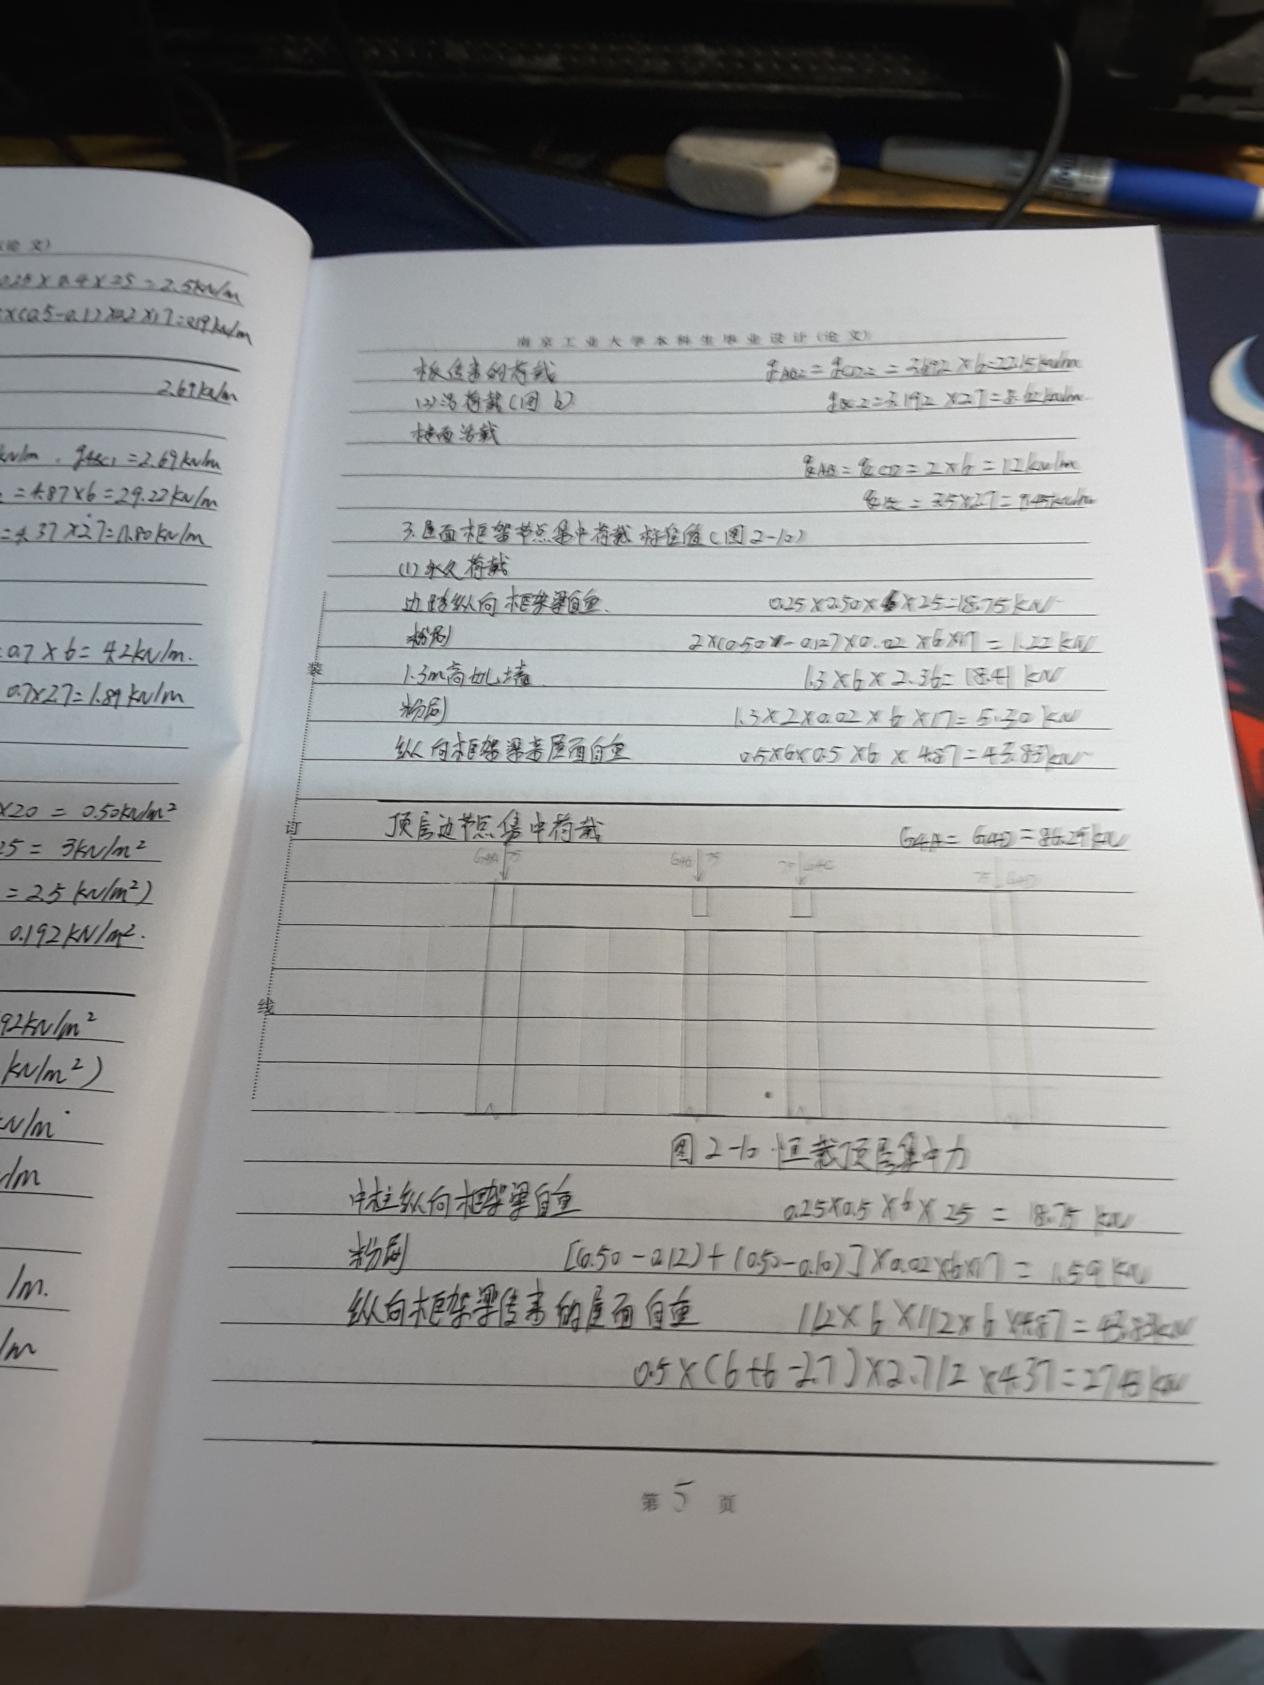 论 文)
0.25×0.4×25=2.5kN/m
×(0.5-0.12)×0.02×17=0.19kN/m
2.69kN/m
kN/m . gBC1=2.69kN/m
=4.87×6=29.22kN/m
=4.37×2.7=11.80kN/m
0.7×6=4.2kN/m.
0.7×2.7=1.89kN/m
×20 = 0.50kN/m²
25 = 3kN/m²
=2.5kN/m²)
0.192kN/m².
92kN/m²
kN/m²)
kN/m
/m
/m.
/m
南京工业大学本科生毕业设计(论文)
板传来的荷载 gAB2=gCD2=3.692×6=22.15kN/m
(2)活荷载(图 b) gBC2=3.192×2.7=8.62kN/m
楼面活载
qAB=qCD=2×6=12kN/m
qBC=3.5×2.7=9.45kN/m
3.屋面框架节点集中荷载标准值(图2-10)
(1)永久荷载
边跨纵向框架梁自重. 0.25×0.50×6×25=18.75kN
粉刷 2×(0.50-0.12)×0.02×6×17=1.22kN
1.3m高女儿墙 1.3×6×2.36=18.41kN
粉刷 1.3×2×0.02×6×17=5.30kN
纵向框架梁来屋面自重 0.5×6×0.5×6×4.87=43.83kN
装
订
线
顶层边节点集中荷载 G4A=G4D=86.29kN
G4A 75 G4B 75 75 G4C 75 G4D
图2-10.恒载顶层集中力
中柱纵向框架梁自重 0.25×0.5×6×25=18.75kN
粉刷 [(0.50-0.12)+(0.50-0.10)]×0.02×6×17=1.59kN
纵向框架梁传来的屋面自重 1/2×6×1/2×6×4.87=43.83kN
0.5×(6+6-2.7)×2.7/2×4.37=27.43kN
第 5 页